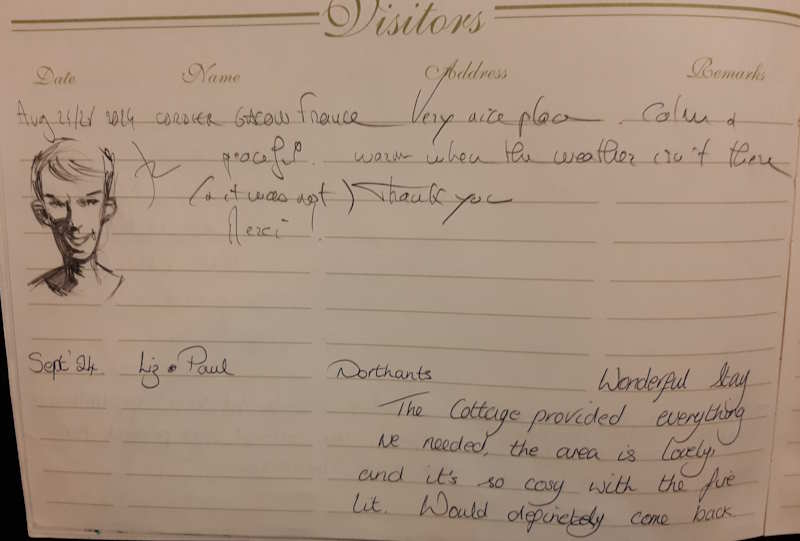 Visitors
Date Name Address Remarks
Aug 2024 France Very nice place. Calm &
peaceful. warm when the weather isn't there
(& it was not) Thank you
Merci!
Sept '24 Liz & Paul Northants Wonderful stay
The Cottage provided everything
we needed, the area is lovely
and it's so cosy with the fire
lit. Would definetely come back